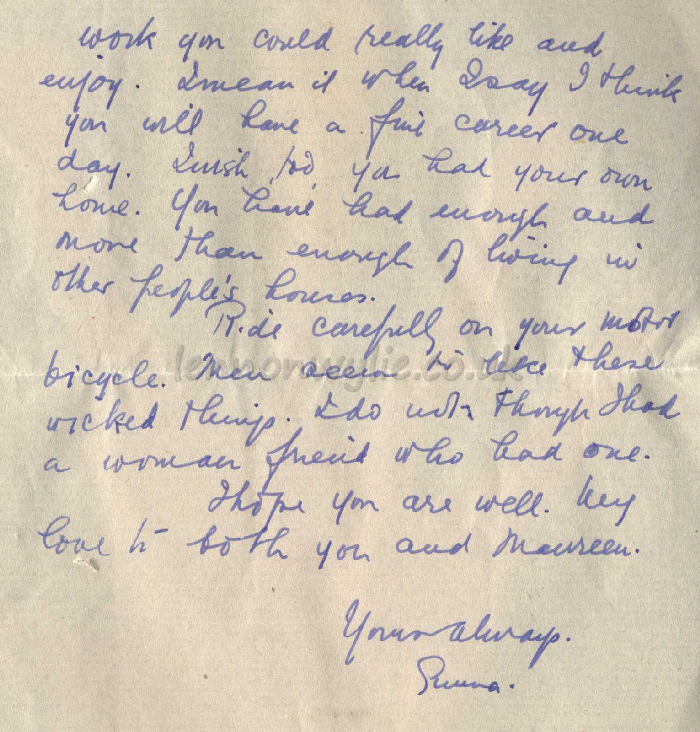 work you could really like and
enjoy. I mean it when I say I think
you will have a fine career one
day. I wish, too, you had your own
home. You have had enough and
more than enough of living in
other people's houses.
Ride carefully on your motor
bicycle. Men seem to like these
wicked things. I do not though I had
a woman friend who had one.
I hope you are well. My
love to both you and Maureen.
Yours always.
Emma.
lennonwylie.co.uk